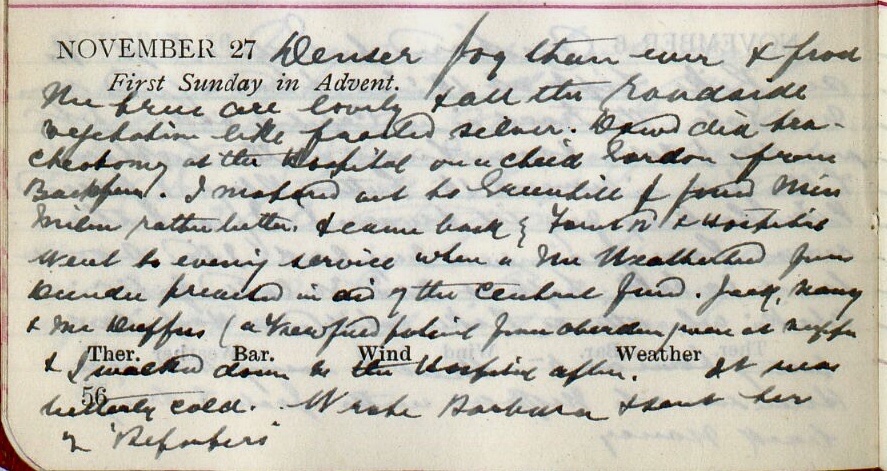 NOVEMBER 27 Denser fog than ever & frost
First Sunday in Advent.
The trees are lovely & all the roadside
vegetation like frosted silver. David did tra-
cheotomy at the Hospital on a child Gordon from
I motored out to Greenhill & found Miss
Milne rather better. & came back & Hospital
Went to evening service when a Mr Weatherhead from
Dundee preached in aid of the Central Fund. Jack, Nancy
& Mr (a from Aberdeen) were at supper
Ther. Bar. Wind Weather
& I walked down to the Hospital after. It was
56
bitterly cold. Wrote Barbara & sent her
2 'Reporters'